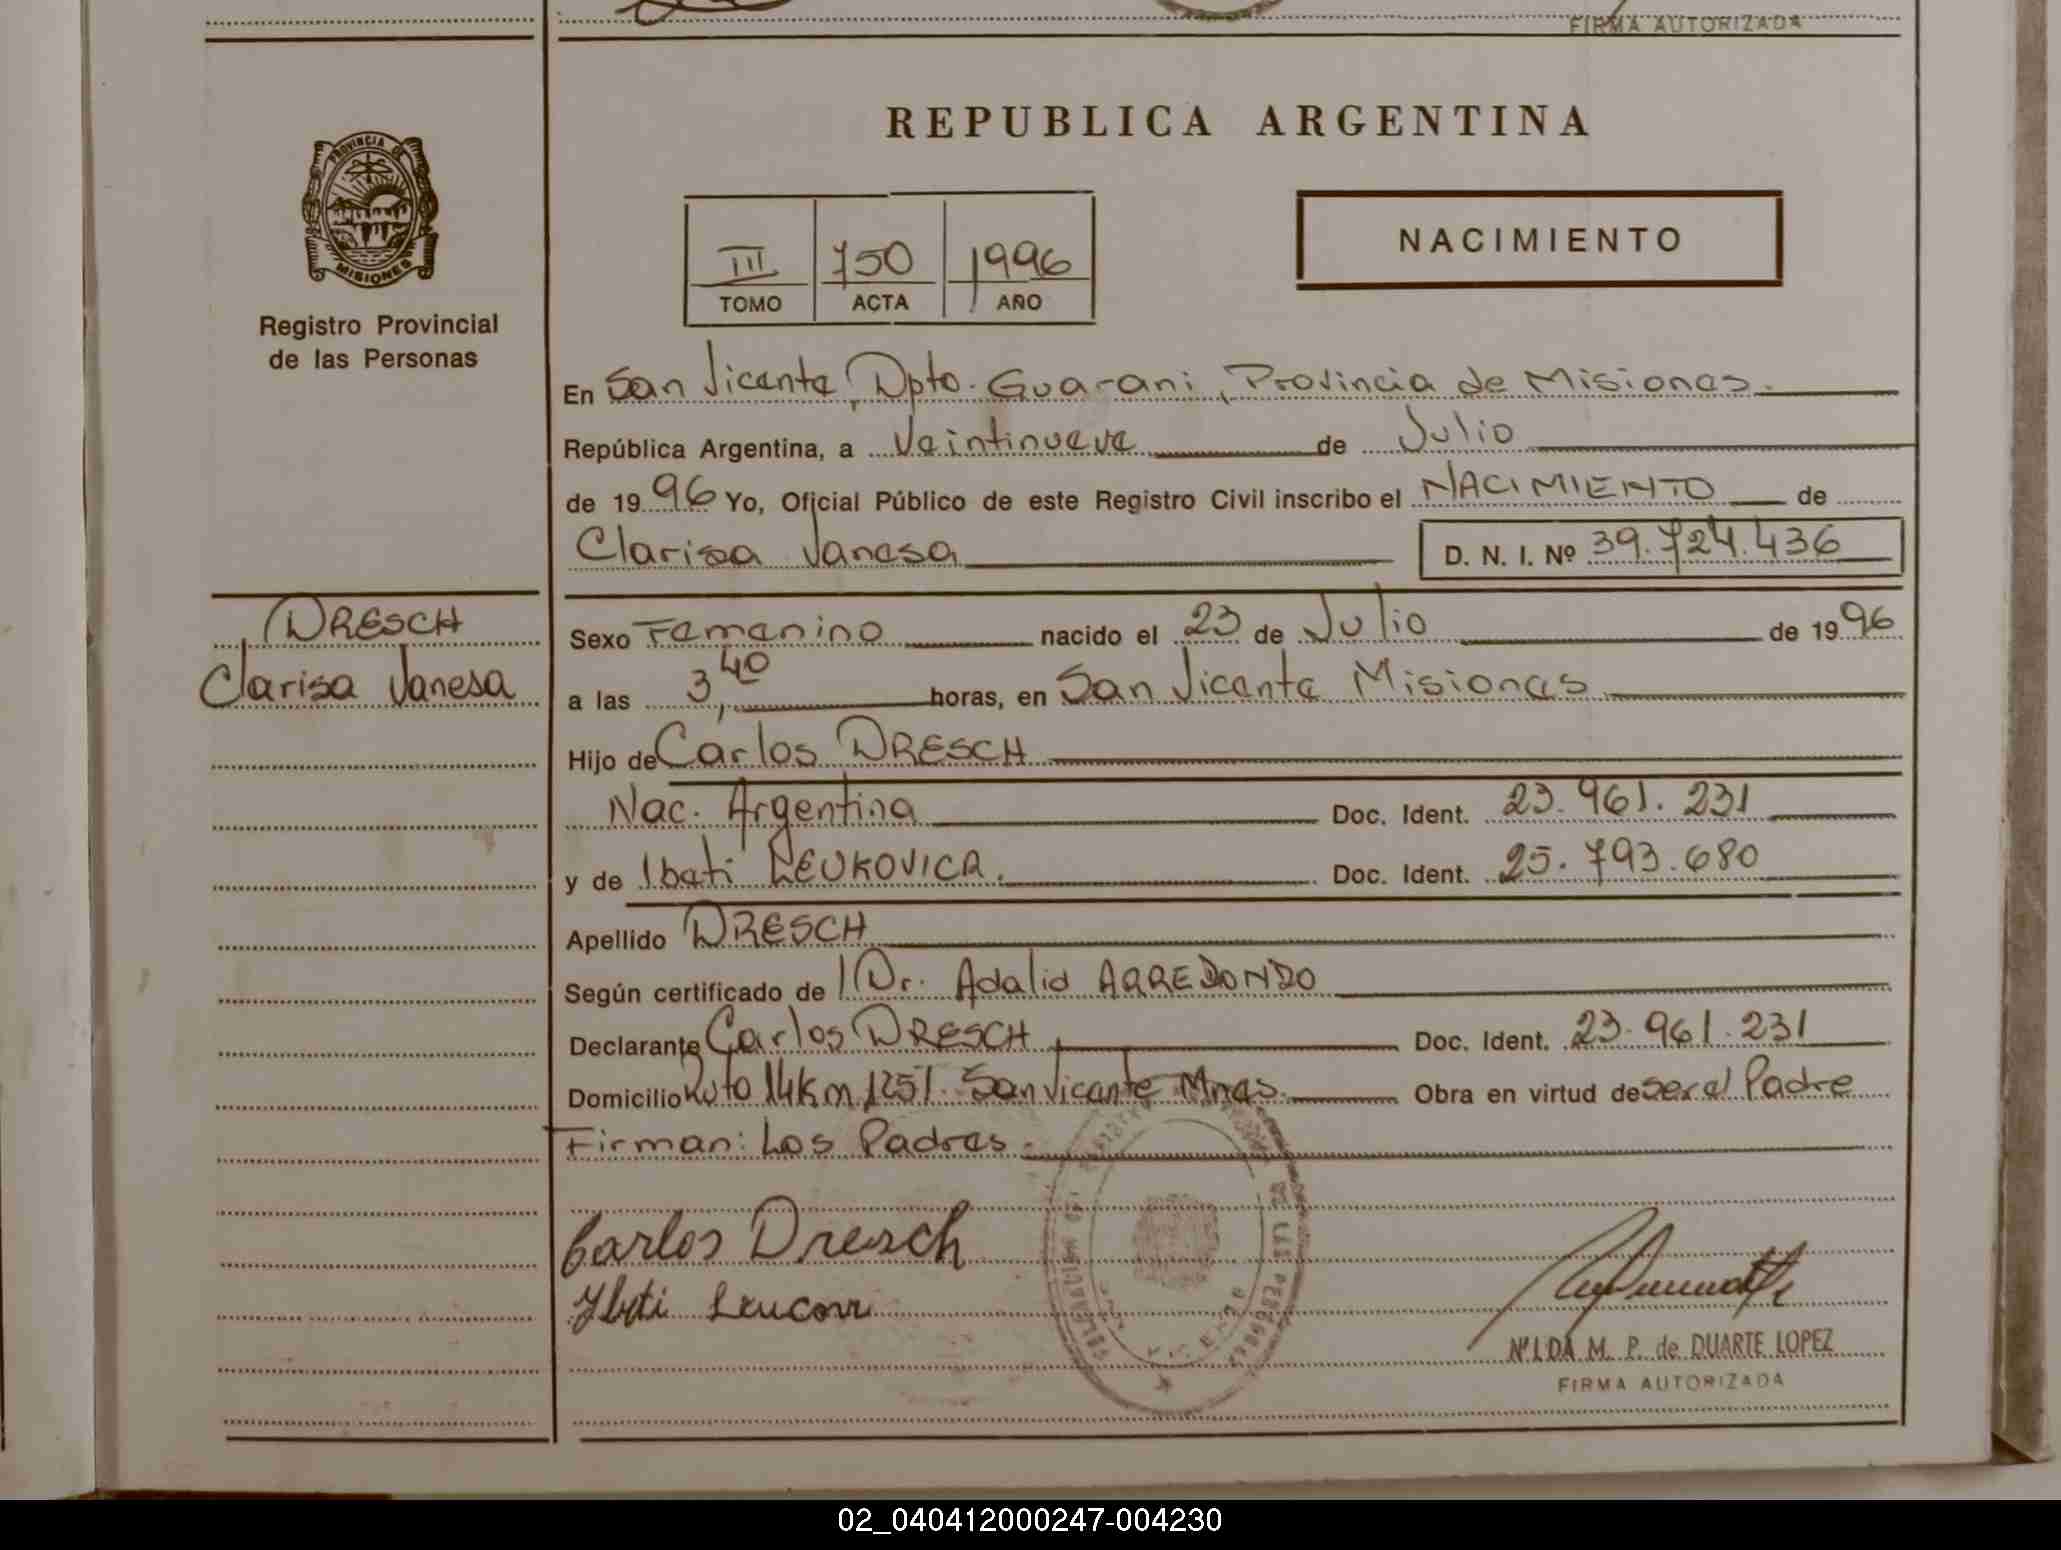 FIRMA AUTORIZADA
REPUBLICA ARGENTINA
PROVINCIA DE
MISIONES
Registro Provincial
de las Personas
III 750 1996
TOMO ACTA AÑO
NACIMIENTO
En San Vicente, Dpto. Guarani, Provincia de Misiones.
República Argentina, a Veintinueve de Julio
de 1996 Yo, Oficial Público de este Registro Civil inscribo el NACIMIENTO de
Clarisa Vanesa D. N. I. Nº 39.724.436
DRESCH
Clarisa Vanesa
Sexo Femenino nacido el 23 de Julio de 1996
a las 3,40 horas, en San Vicente Misiones
Hijo de Carlos DRESCH
Nac. Argentina Doc. Ident. 23.961.231
y de Ibati LEUKOVICR. Doc. Ident. 25.793.680
Apellido DRESCH
Según certificado de Dr. Adalid ARREDONDO
Declarante Carlos DRESCH Doc. Ident. 23.961.231
Domicilio Ruta 14 km 1251. San Vicente Mnes. Obra en virtud de ser el Padre
Firman: Los Padres.
Carlos Dresch
Ybati
DE LAS PERSONAS
NILDA M. P. de DUARTE LOPEZ
FIRMA AUTORIZADA
02_040412000247-004230